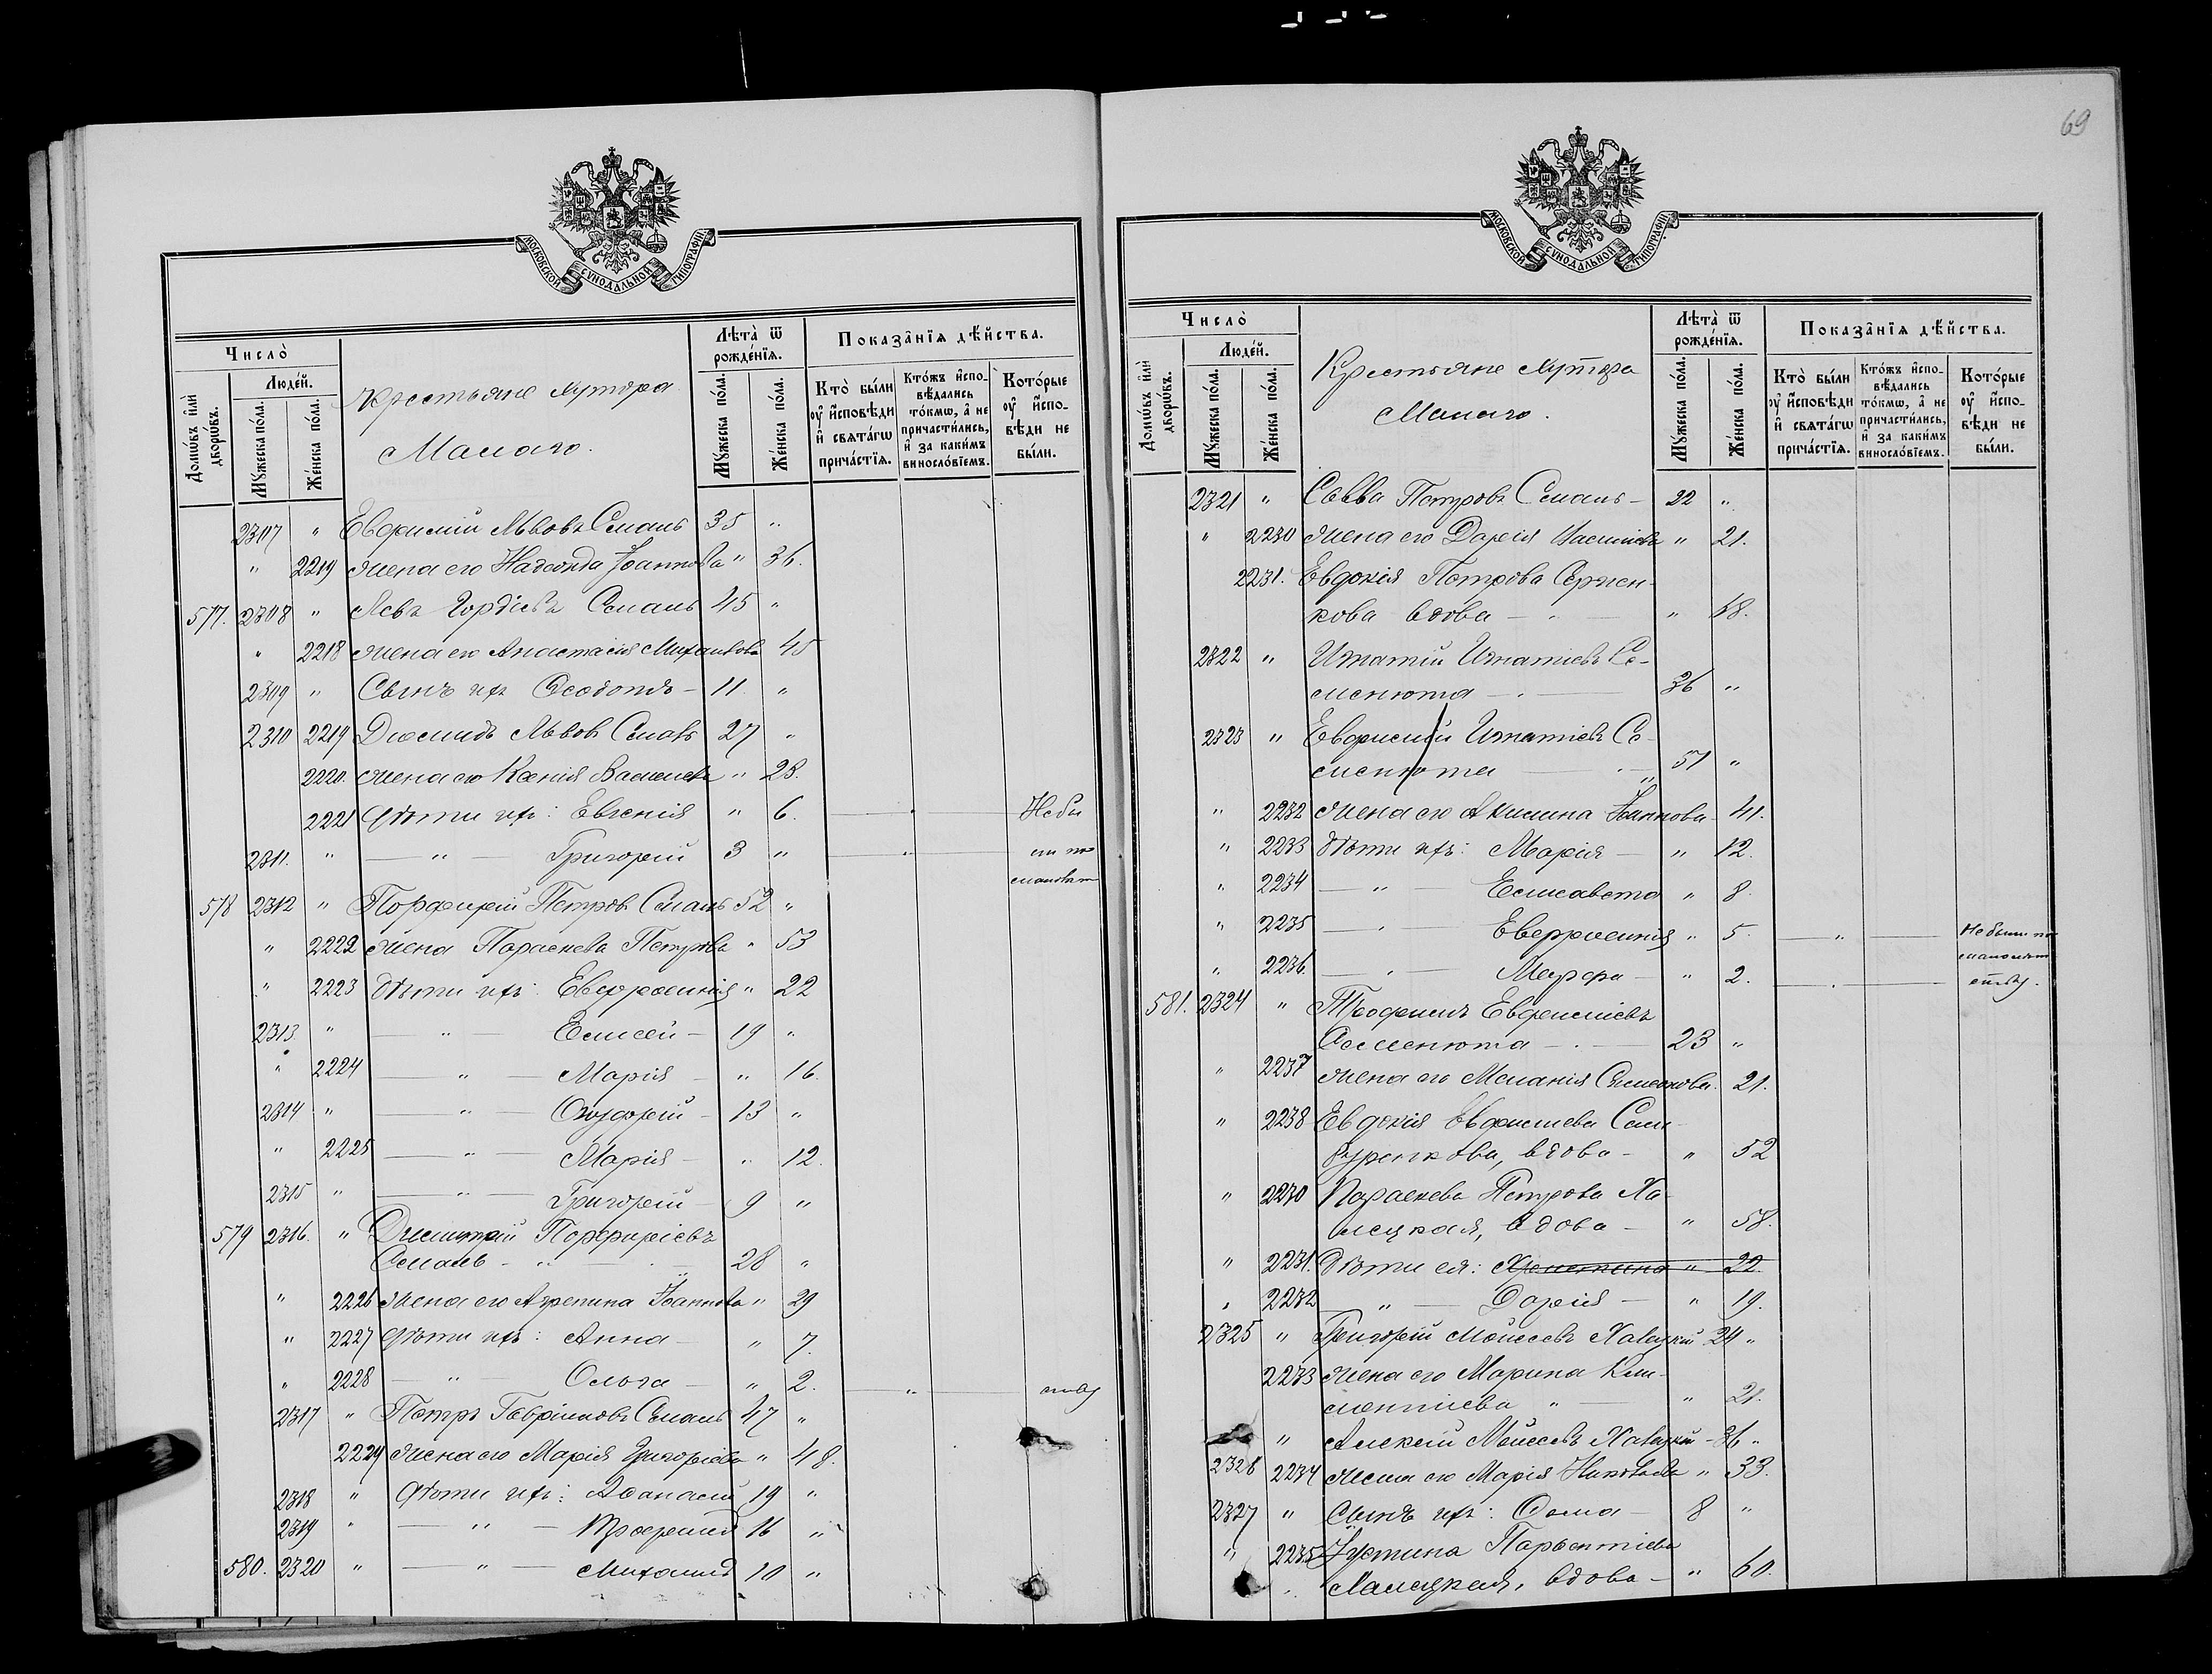 69
МОСКОВСКОЙ СѴНОДАЛЬНОЙ ТИПОГРАФІИ
Число̀
Домѡ́въ и҆лѝ дворѡ́въ.
Люде́й.
Мꙋ́жеска по́ла.
Же́нска по́ла.
Крестьяне хутора
Малаго.
Лѣта̀ ѿ рожде́нїѧ.
Мꙋ́жеска по́ла.
Же́нска по́ла.
Показа̑нїѧ дѣ́йства.
Кто̀ бы́ли оу҆ и҆сповѣди и҆ свѧта́гѡ прича́стїѧ.
Кто́жъ и҆спо-вѣдались то́кмѡ, а҆ не причасти́лись, и҆ за каки́мъ винословїемъ.
Кото́рые оу҆ и҆спо-вѣди не бы́ли.
2307 " Евфимій Львовъ Смаль 35 "
" 2219 Жена его Надежда Іоаннова " 36.
577. 2308 " Левъ Гордіевъ Смаль 45 "
" 2218 Жена его Анастасія Михаилова 45
2309 " Сынъ ихъ Ѳеодотъ - 11. "
2310 2219 Діомидъ Львовъ Смаль 27 "
2220. Жена его Ксенія Василіева " 28.
2221 Дѣти ихъ: Евгенія " 6. — " — Не бы
2311. " — " — Григорій 3 " — " — ли по
малолѣт
578 2312 " Порфирій Петровъ Смаль 52 "
" 2222 Жена Параскева Петрова " 53
" 2223 Дѣти ихъ: Евфросинія " 22
2313. " — " — Елисей - 19 "
" 2224 — " — Марія - " 16.
2314 " — " — Онуфрій - 13 "
" 2225 — " — Марія - " 12.
2315 " — " — Григорій - 9 "
579 2316. " Димитрій Порфиріевъ
Смаль - " — 28 "
" 2226 Жена его Агрепина Іоаннова " 29
" 2227 Дѣти ихъ: Анна - " 7.
" 2228 — " — Ольга - " 2. — " — ству
2317 " Петръ Гавріиловъ Смаль 47 "
2229 Жена его Марія Григоріева " 48.
2318 " Дѣти ихъ: Аѳанасій 19 "
2319 " — " — 16 "
580. 2320 " — " — Михаилъ 10 "
МОСКОВСКОЙ СѴНОДАЛЬНОЙ ТИПОГРАФІИ
Число̀
Домѡ́въ и҆лѝ дворѡ́въ.
Люде́й.
Мꙋ́жеска по́ла.
Же́нска по́ла.
Крестьяне хутора
Малаго.
Лѣта̀ ѿ рожде́нїѧ.
Мꙋ́жеска по́ла.
Же́нска по́ла.
Показа̑нїѧ дѣ́йства.
Кто̀ бы́ли оу҆ и҆сповѣди и҆ свѧта́гѡ прича́стїѧ.
Кто́жъ и҆спо-вѣдались то́кмѡ, а҆ не причасти́лись, и҆ за каки́мъ винословїемъ.
Кото́рые оу҆ и҆спо-вѣди не бы́ли.
2321 " Савва Петровъ Смаль - 22 "
" 2230 Жена его Дарія " 21.
2231. Евдокія Петрова Сержен-
кова вдова — " — " 48.
2322 " Игнатій Игнатіевъ Се-
менюта — " — 36 "
2323 " Евфимій Игнатіевъ Се-
менюта — 51 "
" 2232 Жена его Акилина Іоаннова - 41.
" 2233 Дѣти ихъ: Марія — " 12.
" 2234 — " — Елисавета " 8.
" 2235 — " — Евфросинія " 5. — " — Не были по
" 2236. — " — Марфа - " 2. — " — малолѣт
ству.
581. 2324 " Трофимъ Евфиміевъ
Семенюта — " — 23 "
" 2237 Жена его Меланія Симеонова. 21.
" 2238 Евдокія Евфиміева
вдова - " 52
" 2230 Параскева Петрова Ха-
лецкая, вдова - " 58.
" 2231. Дѣти ея: Христина " 22.
" 2232 — " — Дарія — " 19.
2325 " Григорій Моисеевъ Халецкій 24 "
2233 Жена его Марина Кли-
ментіева " — " 21.
" Алексій Моисеевъ Халецкій - 36 "
2326 2234 Жена его Марія " 33.
2327 " Сынъ ихъ: Ѳома - 8 "
" 2235 Іустина Парѳентіева
" Халецкая, вдова - " 60.